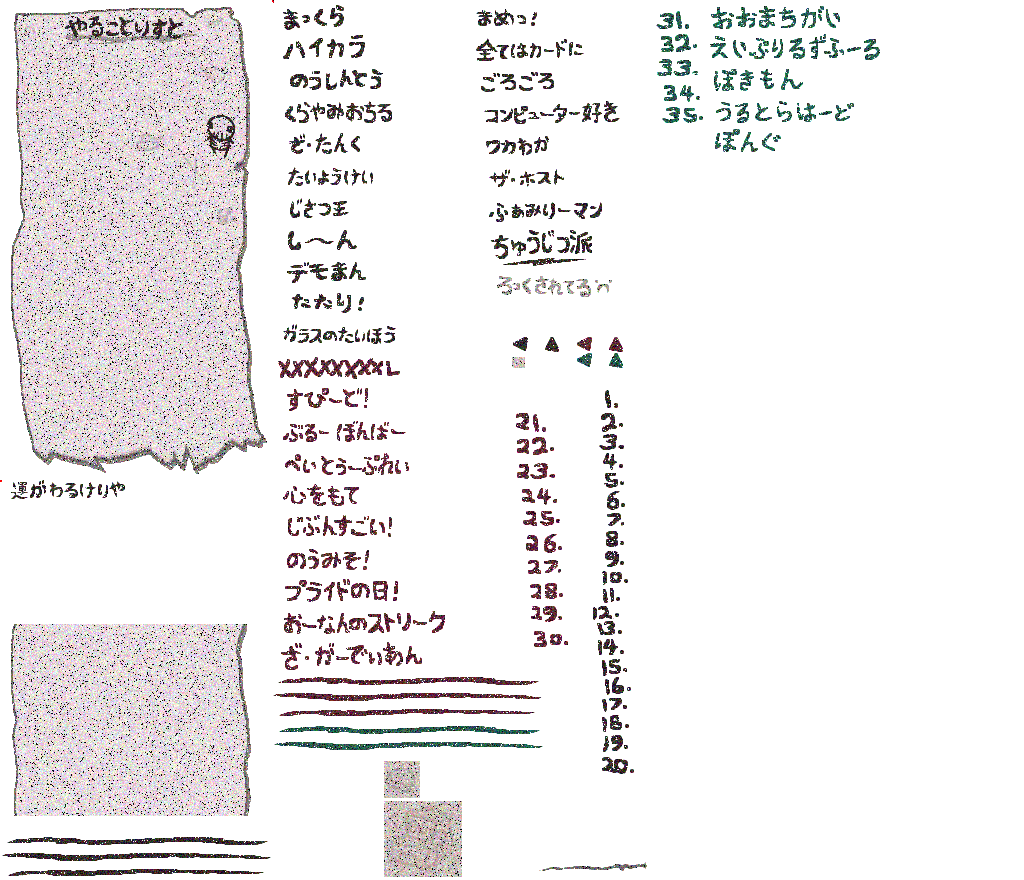 やることりすと
運がわるけりゃ
まっくら
ハイカラ
のうしんとう
くらやみおちる
ざ・たんく
たいようけい
じさつ王
し〜ん
デモまん
たたり!
ガラスのたいほう
XXXXXXXXL
すぴーど!
ぶるーぼんばー
ぺいとぅーぷれい
心をもて
じぶんすごい!
のうみそ!
プライドの日!
おーなんのストリーク
ざ・がーでぃあん
まめっ!
全てはカードに
ごろごろ
コンピューター好き
ワカわか
ザ・ホスト
ふぁみりーマン
ちゅうじつ派
ろっくされてるハ
21.
22.
23.
24.
25.
26.
27.
28.
29.
30.
1.
2.
3.
4.
5.
6.
7.
8.
9.
10.
11.
12.
13.
14.
15.
16.
17.
18.
19.
20.
31.
32.
33.
34.
35.
おおまちがい
えいぷりるずふーる
ぽきもん
うるとらはーど
ぽんぐ